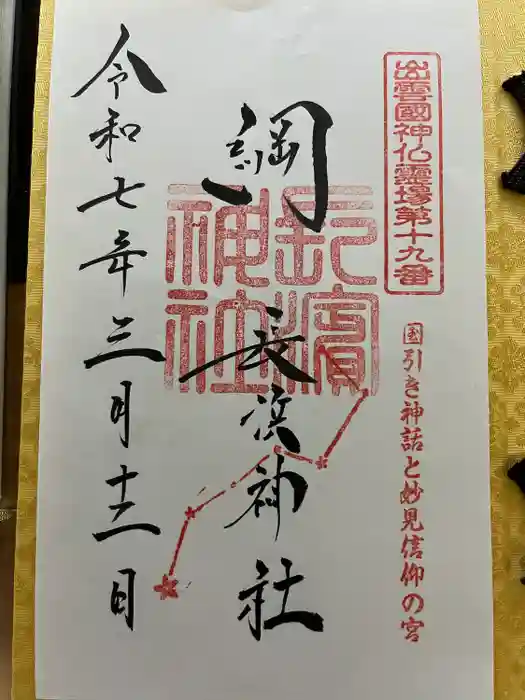 出雲國神仏霊場第十九番
国引き神話と妙見信仰の宮
綱
長浜神社
長濱神社
令和七年三月十二日